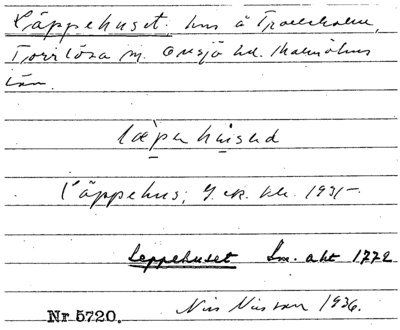 Läppehuset, hus å Trolleholm,
Torrlösa sn. Onsjö hd. Malmöhus
län.
Läppehus, G. ek. kk. 1931-
Leppehuset Lm. akt 1772
Nr 5720. Nils Nilsson 1936.